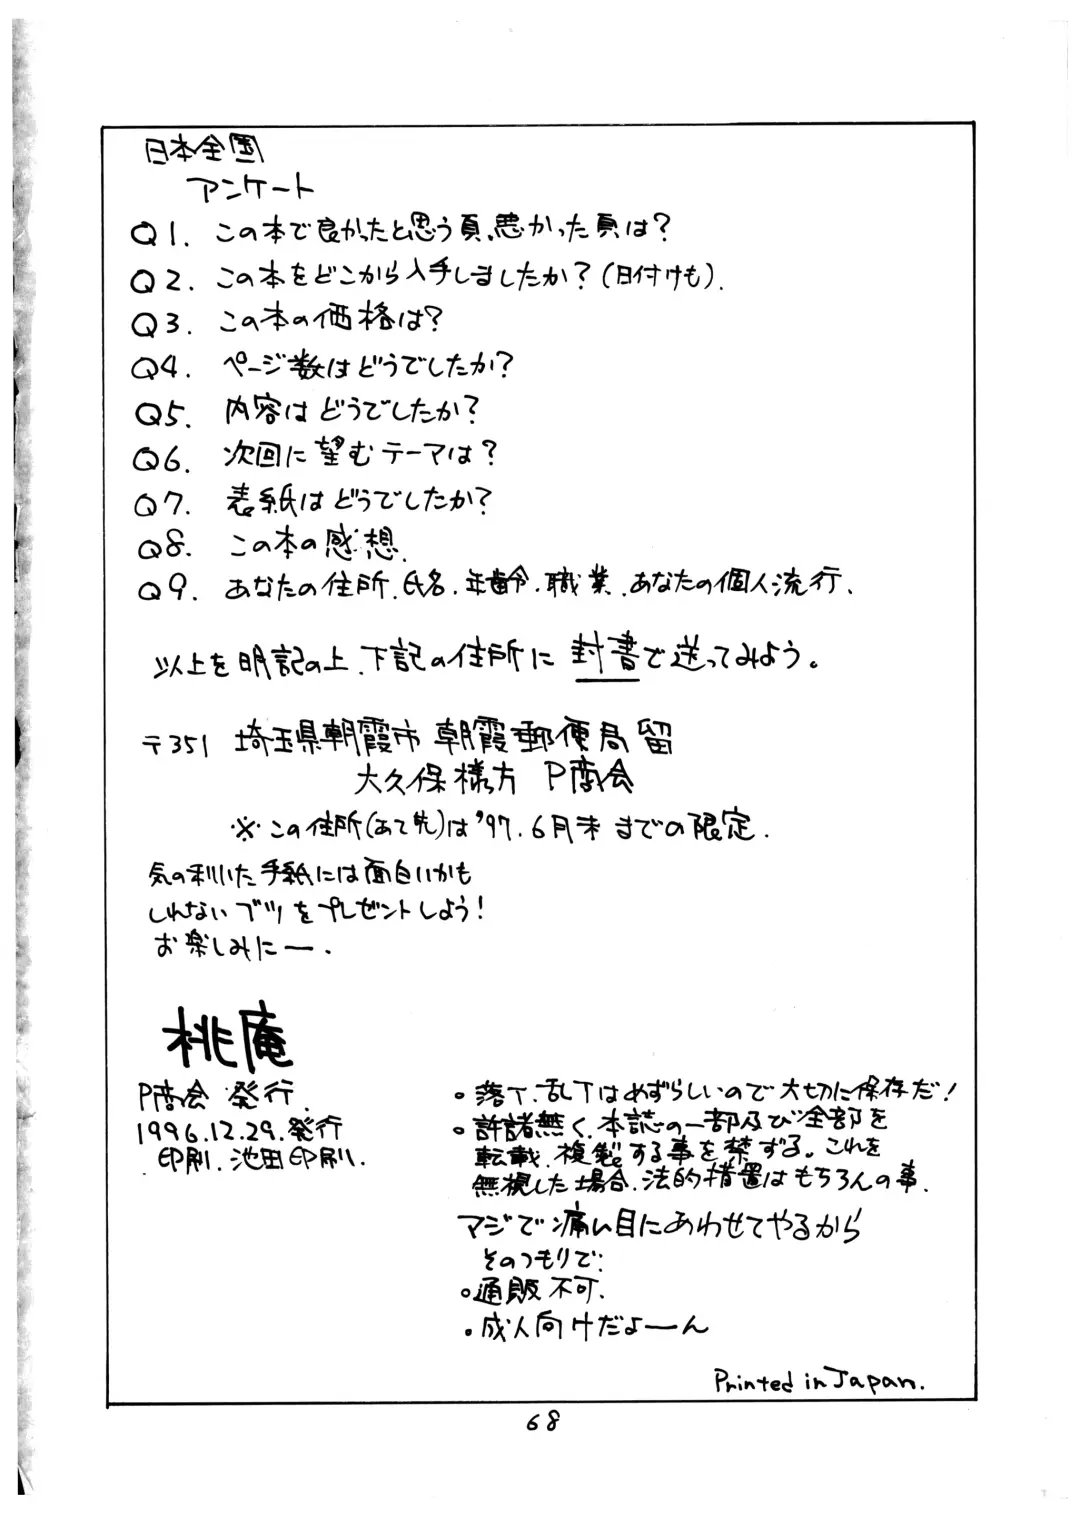 日本全国
アンケート
Q1. この本で良かったと思う頁、悪かった頁は？
Q2. この本をどこから入手しましたか？(日付けも).
Q3. この本の価格は？
Q4. ページ数はどうでしたか？
Q5. 内容はどうでしたか？
Q6. 次回に望むテーマは？
Q7. 表紙はどうでしたか？
Q8. この本の感想.
Q9. あなたの住所.氏名.年齢.職業.あなたの個人流行.
以上を明記の上.下記の住所に封書で送ってみよう。
〒351 埼玉県朝霞市朝霞郵便局留
大久保様方 P商会
※この住所(あて先)は'97.6月末までの限定.
気の利いた手紙には面白いかも
しれないブツをプレゼントしよう!
お楽しみにー.
桃庵
P商会 発行.
1996.12.29.発行
印刷.池田印刷.
。落丁.乱丁はめずらしいので大切に保存だ!
。許諾無く、本誌の一部及び全部を
転載.複製する事を禁ずる。これを
無視した場合.法的措置はもちろんの事.
マジで痛い目にあわせてやるから
そのつもりで:
。通販不可.
。成人向けだよーん
Printed in Japan.
68